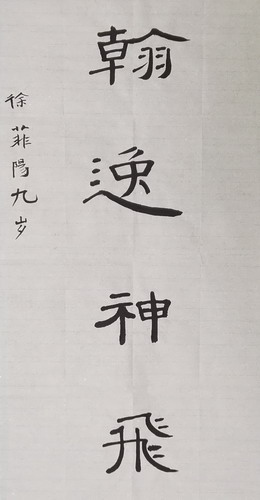 翰逸神飛
徐菲陽九岁